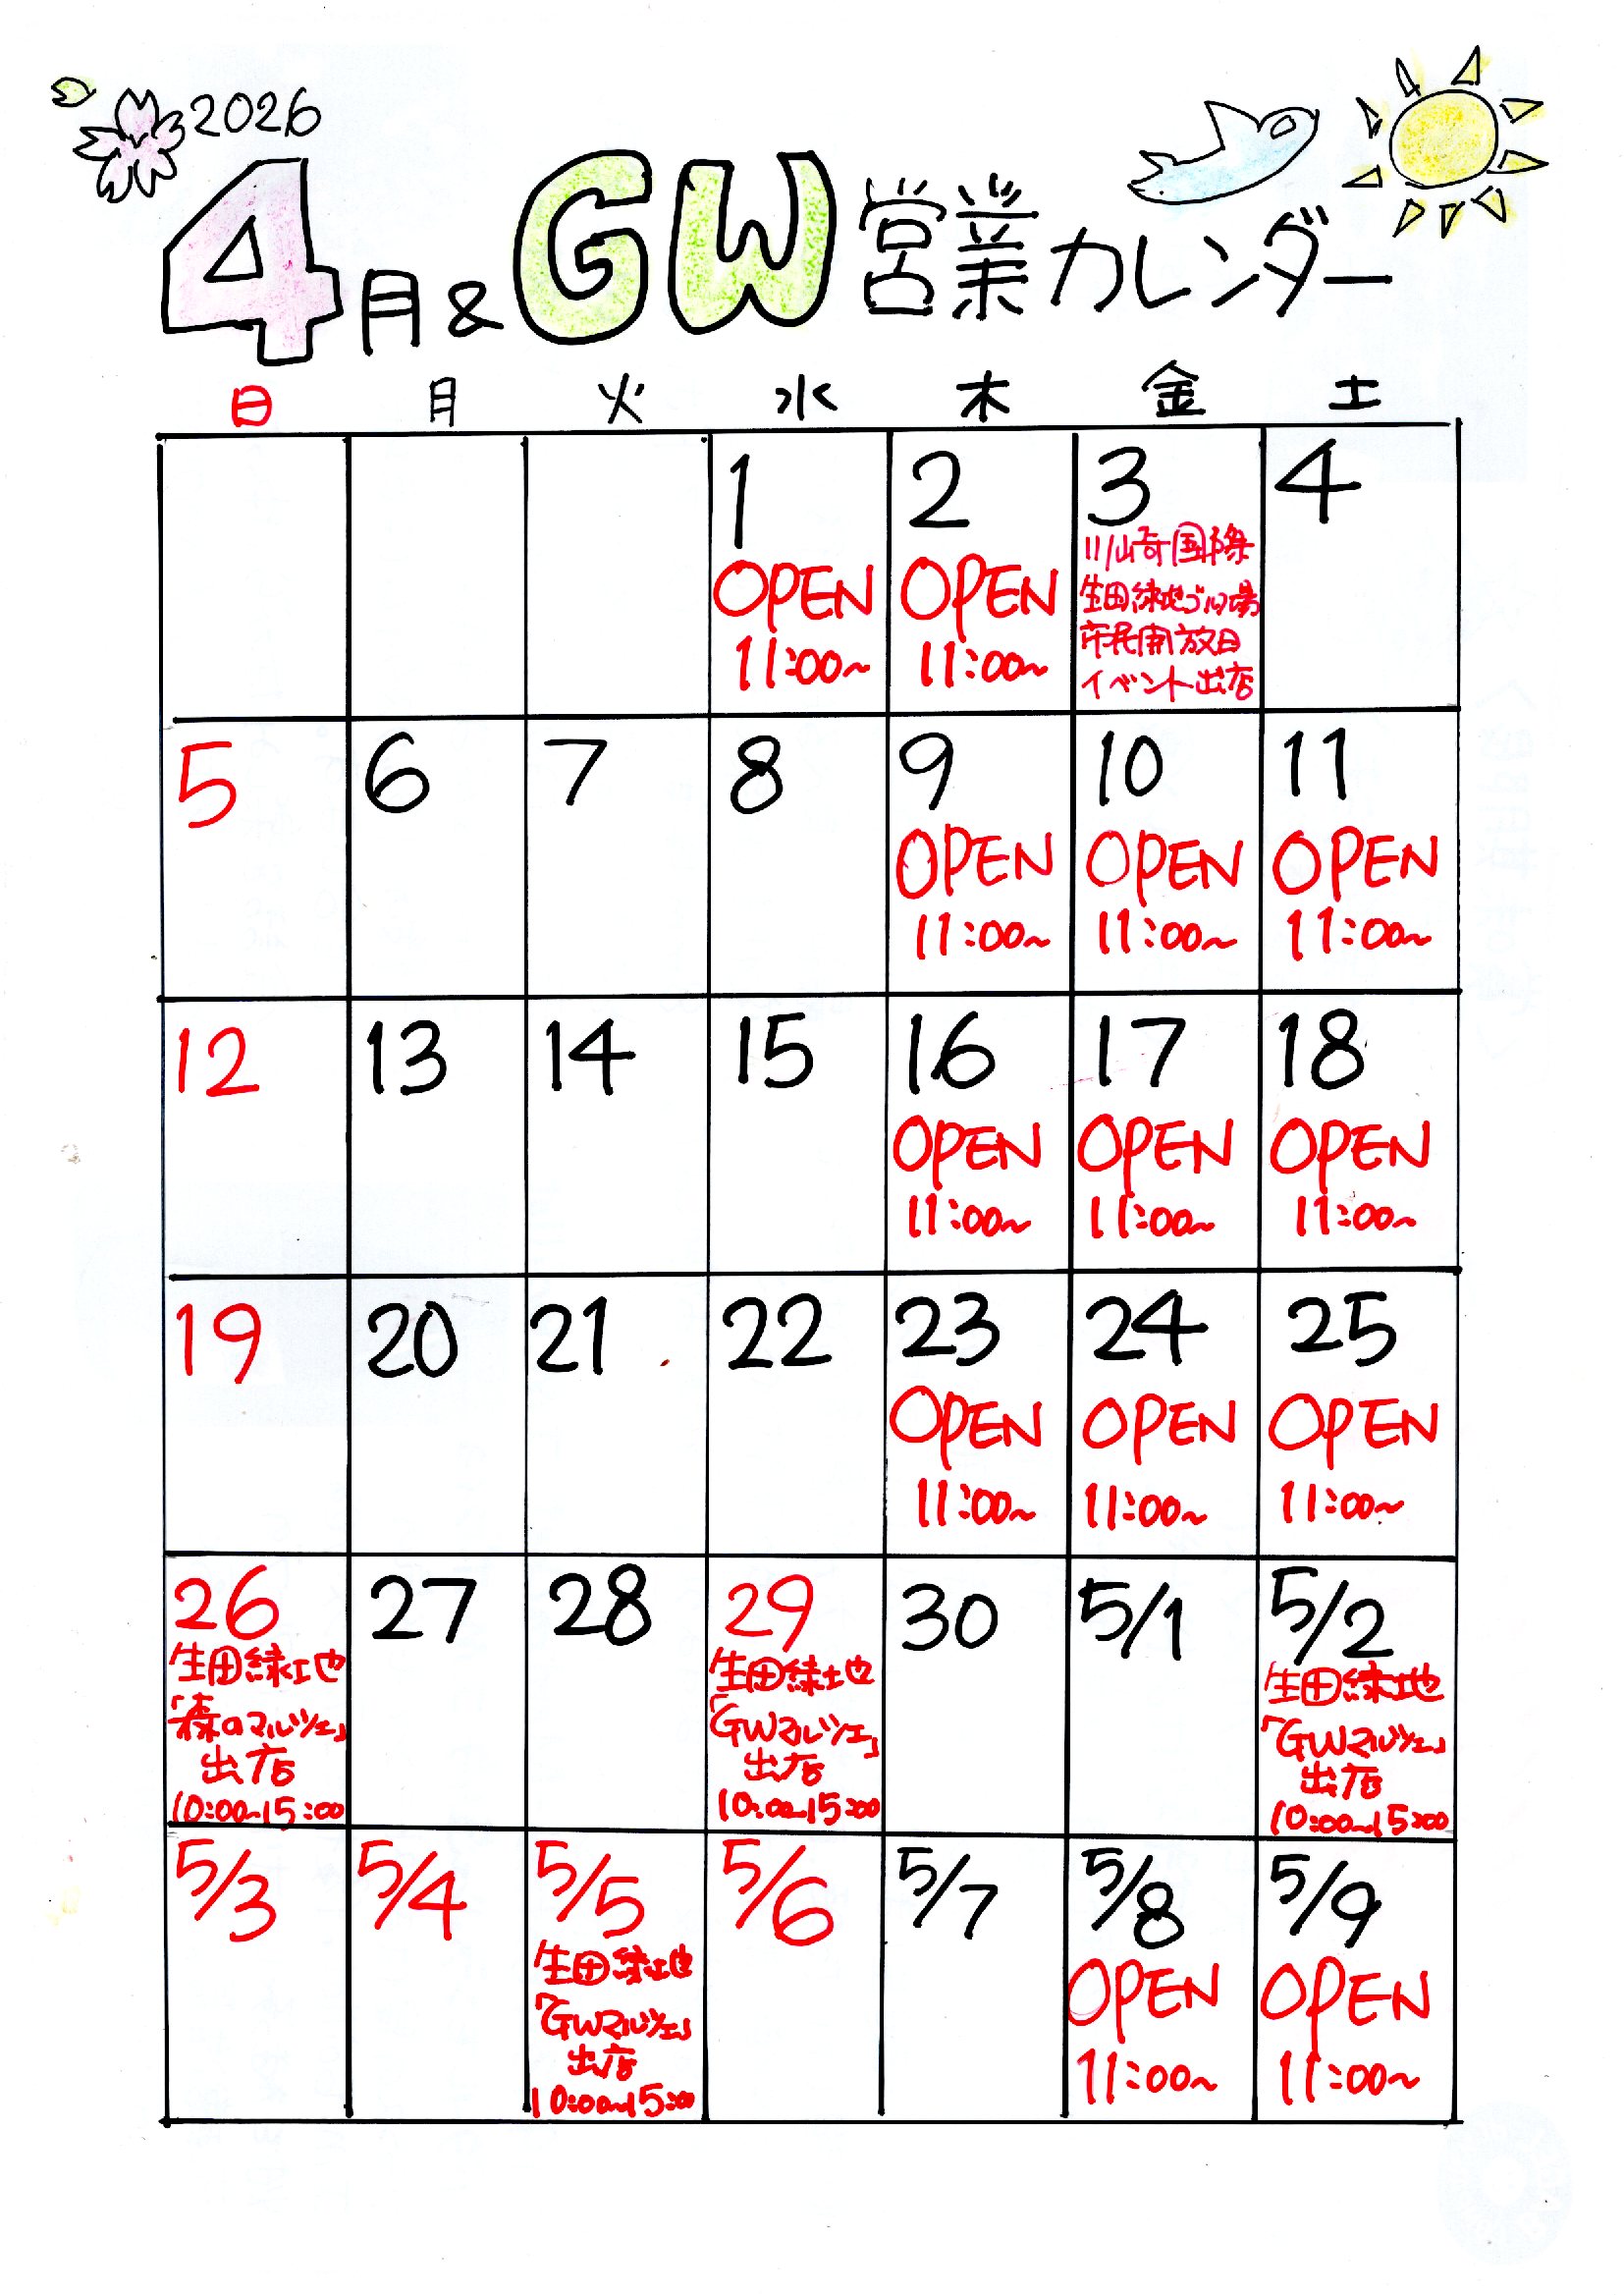 2026
4月&GW営業カレンダー
日 月 火 水 木 金 土
1 2 3 4
OPEN
11:00~
OPEN
11:00~
川崎国際
生田緑地ゴルフ場
市民開放日
イベント出店
5 6 7 8 9 10 11
OPEN
11:00~
OPEN
11:00~
OPEN
11:00~
12 13 14 15 16 17 18
OPEN
11:00~
OPEN
11:00~
OPEN
11:00~
19 20 21 22 23 24 25
OPEN
11:00~
OPEN
11:00~
OPEN
11:00~
26 27 28 29 30 5/1 5/2
生田緑地
「森のマルシェ」
出店
10:00~15:00
生田緑地
「GWマルシェ」
出店
10:00~15:00
生田緑地
「GWマルシェ」
出店
10:00~15:00
5/3 5/4 5/5 5/6 5/7 5/8 5/9
生田緑地
「GWマルシェ」
出店
10:00~15:00
OPEN
11:00~
OPEN
11:00~